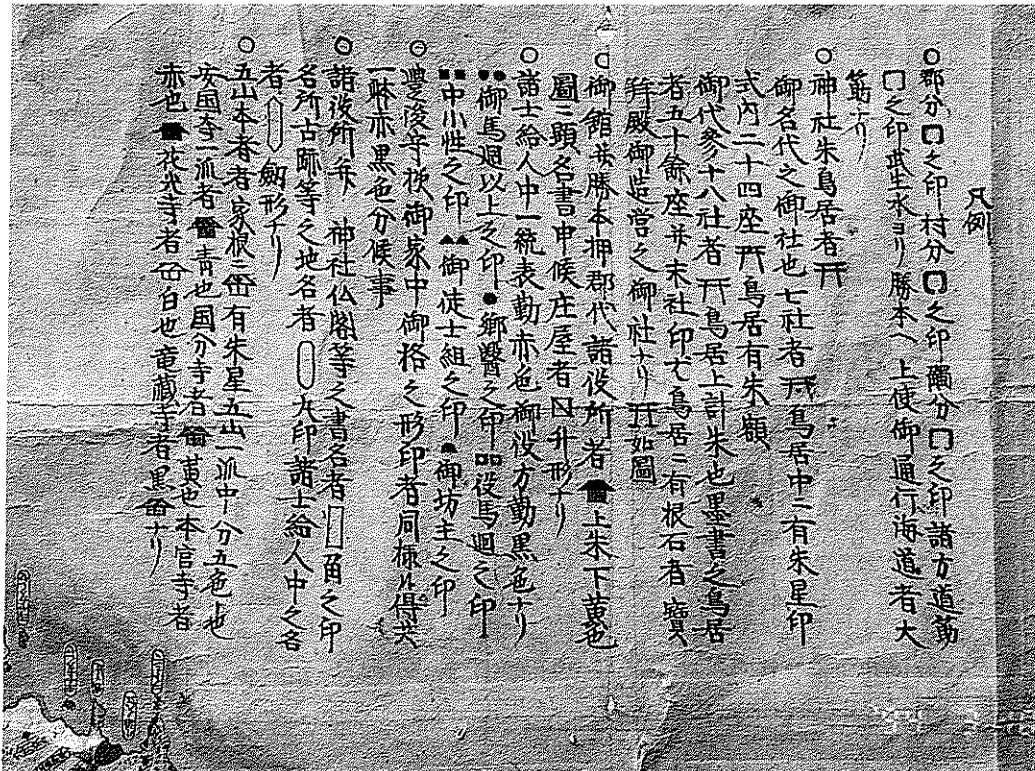 凡例
○郡分□之印村分□之印触分□之印諸方道筋
□之印武生水ヨリ勝本ヘ上使御通行海道者大
筋ナリ
○神社朱鳥居者⛩
御名代之御社也七社者⛩鳥居中ニ有朱星印
式内二十四座⛩鳥居有朱額
御代参十八社者⛩鳥居上計朱也墨書之鳥居
者五十餘座并末社印也鳥居ニ有根石者寳
殿御造営之御社ナリ⛩如圖
○御館并勝本押郡代諸役所者上朱下黄也
圖ニ顕名書申候庄屋者升形ナリ
○諸士給人中一統表勤赤色御役方勤黒色ナリ
●●御馬廻以上之印●郷醫之印■■役馬廻之印
■■中小性之印▲▲御徒士組之印御坊主之印
○豊後守様御家中御格之形印者同様ニ得共
一躰亦黒色分候事
○諸役所并神社仏閣等之書名者角之印
名所古跡等之地名者丸印諸士給人中之名
者劔形ナリ
○五山本者家根有朱星五山一派中分五色上也
安国寺一派者青也国分寺者黄也本宮寺者
赤色花光寺者白也竜蔵寺者黒ナリ